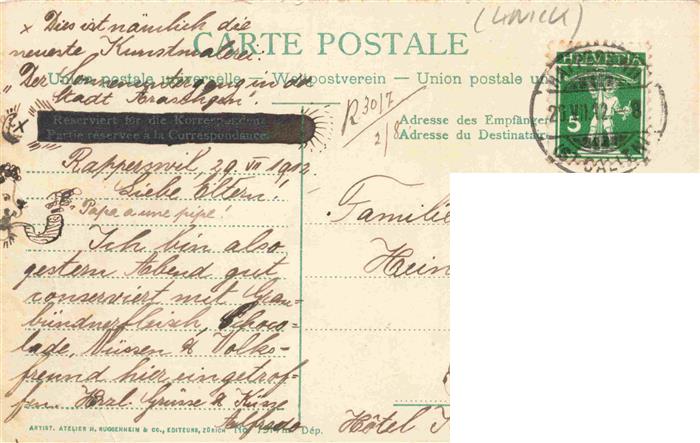 (ZÜRICH)
x Dies ist nämlich die
neueste Kunstmalerei:
CARTE POSTALE
"Der Sonnenuntergang in der
Union postale universelle — Weltpostverein — Union postale
Stadt
HELVETIA
5
x
Reserviert für die Korrespondenz
Partie réservée à la Correspondance
R 30/7
2/8
Adresse des Empfänger
Adresse du Destinataire
Rapperswil, 29 VII 1912
Liebe Eltern!
"Papa a une pipe!
Ich bin also
gestern Abend gut
conserviert mit Grau-
bündnerfleisch, Choco-
lade, Nüssen & Volks-
freund hier eingetrof-
fen. Herzl. Grüsse & Küsse
Alfredo
Familie
Hein
Hôtel
ARTIST. ATELIER H. GUGGENHEIM & CO., EDITEURS, ZÜRICH No. Dép.